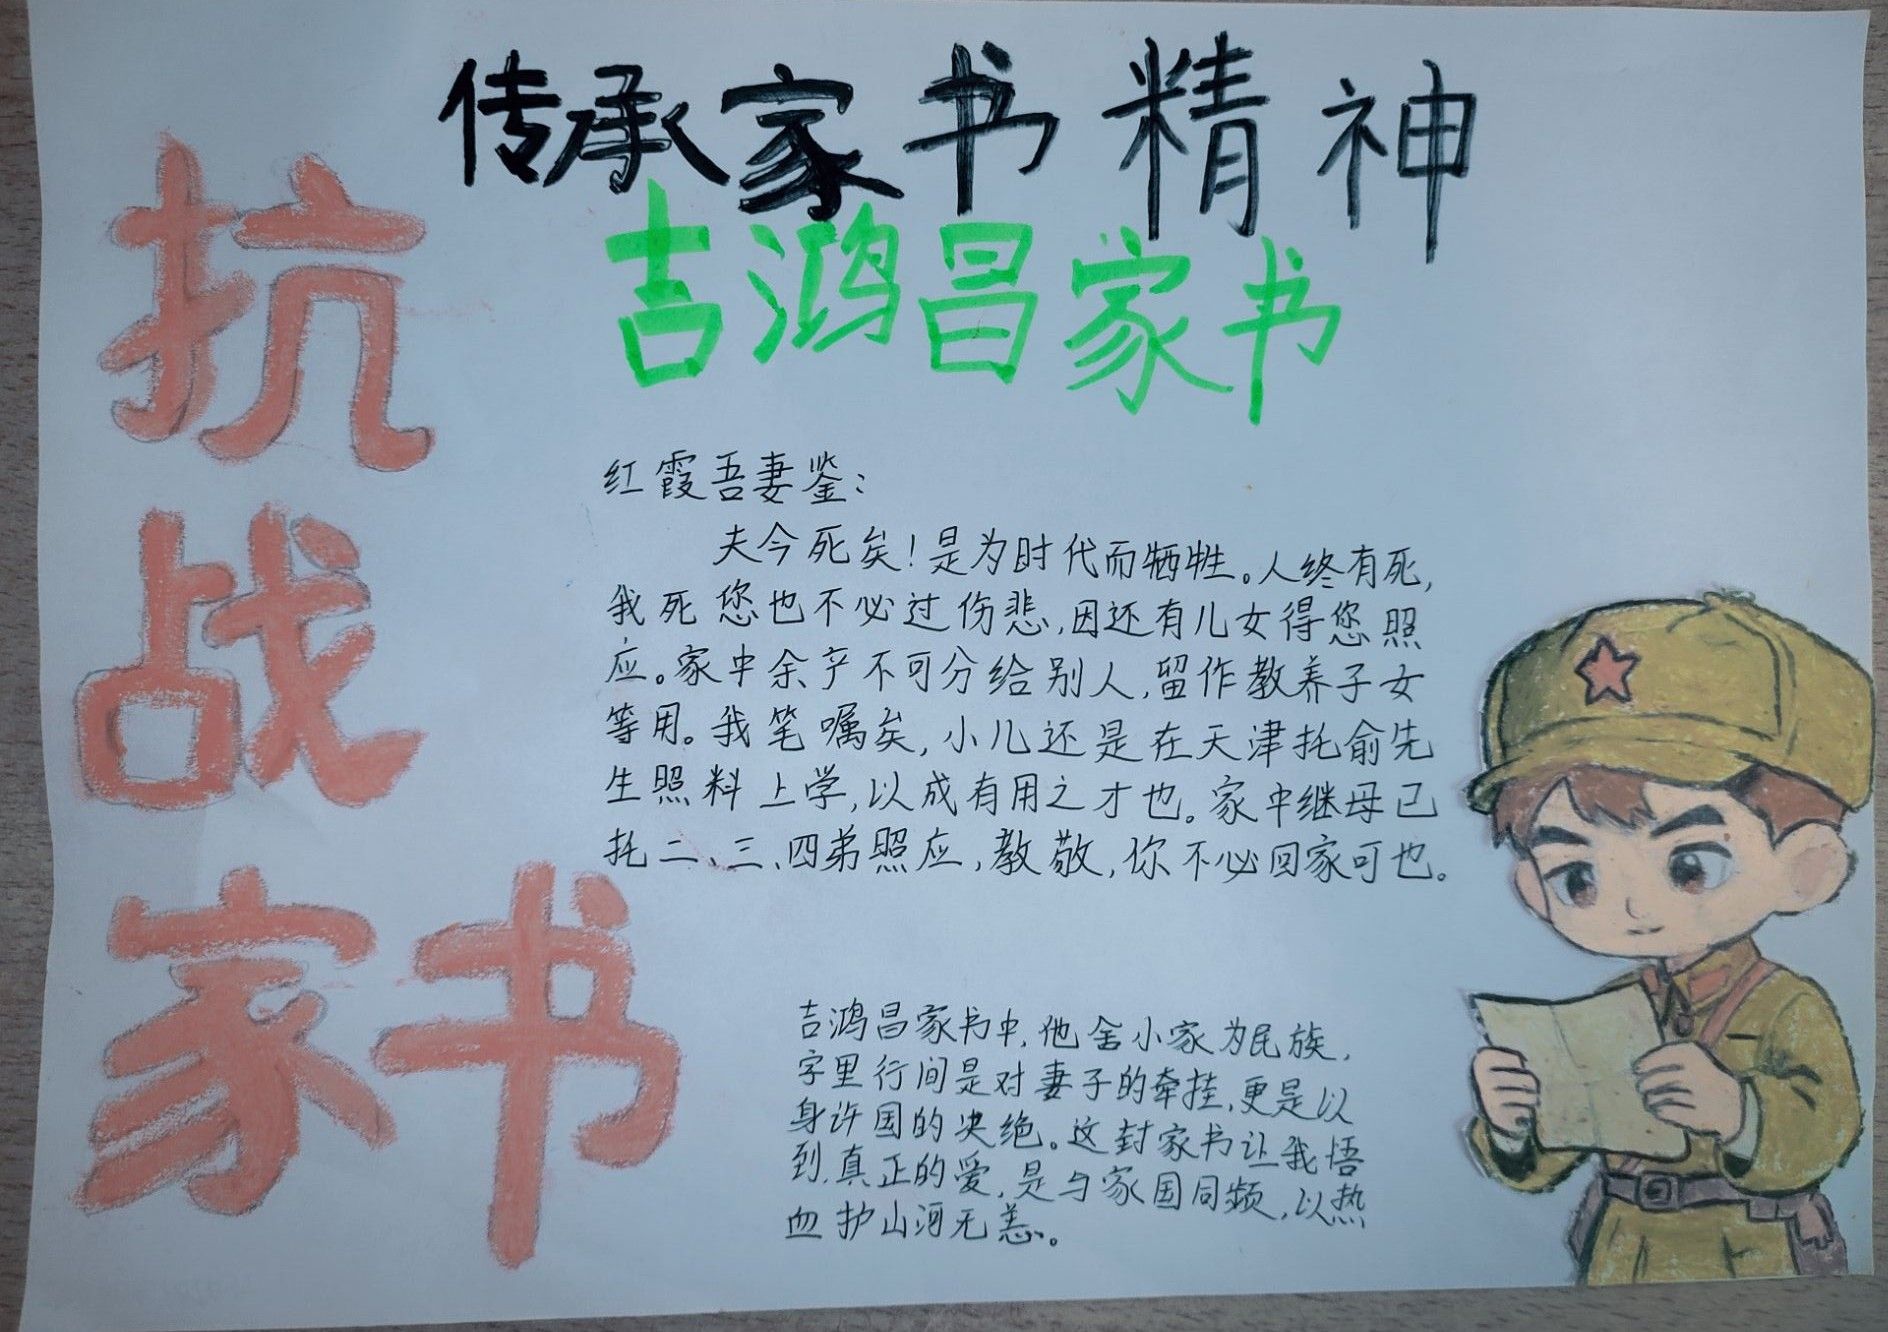 传承家书精神
吉鸿昌家书
抗
战
家书
红霞吾妻鉴:
夫今死矣!是为时代而牺牲。人终有死,
我死您也不必过伤悲,因还有儿女得您照
应。家中余产不可分给别人,留作教养子女
等用。我笔嘱矣,小儿还是在天津托俞先
生照料上学,以成有用之才也。家中继母已
托二、三、四弟照应,教敬,你不必回家可也。
吉鸿昌家书中,他舍小家为民族,
字里行间是对妻子的牵挂,更是以
身许国的决绝。这封家书让我悟
到,真正的爱,是与家国同频,以热
血护山河无恙。